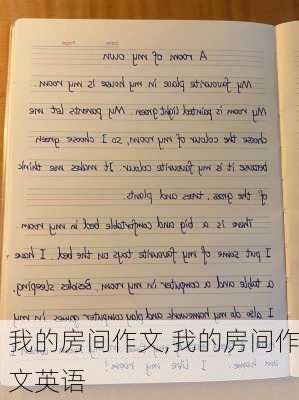 A room of my own
My favourite place in my house is my room
My room is painted light green. My parents let me
choose the colour of my room, so I choose green
because it is my favourite colour. It makes me think
of the grass, trees and plants.
There is a big and comfortable bed in my room
I put some of my favourite toys on the bed. I have
a table and a computer in my room. Besides sleeping,
I also do my homework and play computer games in my
我的房间作文,我的房间作
文英语
room. I like my room!